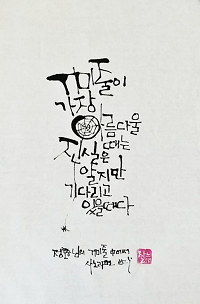 거미줄이
가장
아름다울
때는
진실은
알지만
기다리고
있을 때다
님의 거미줄 中에서
사노라면..